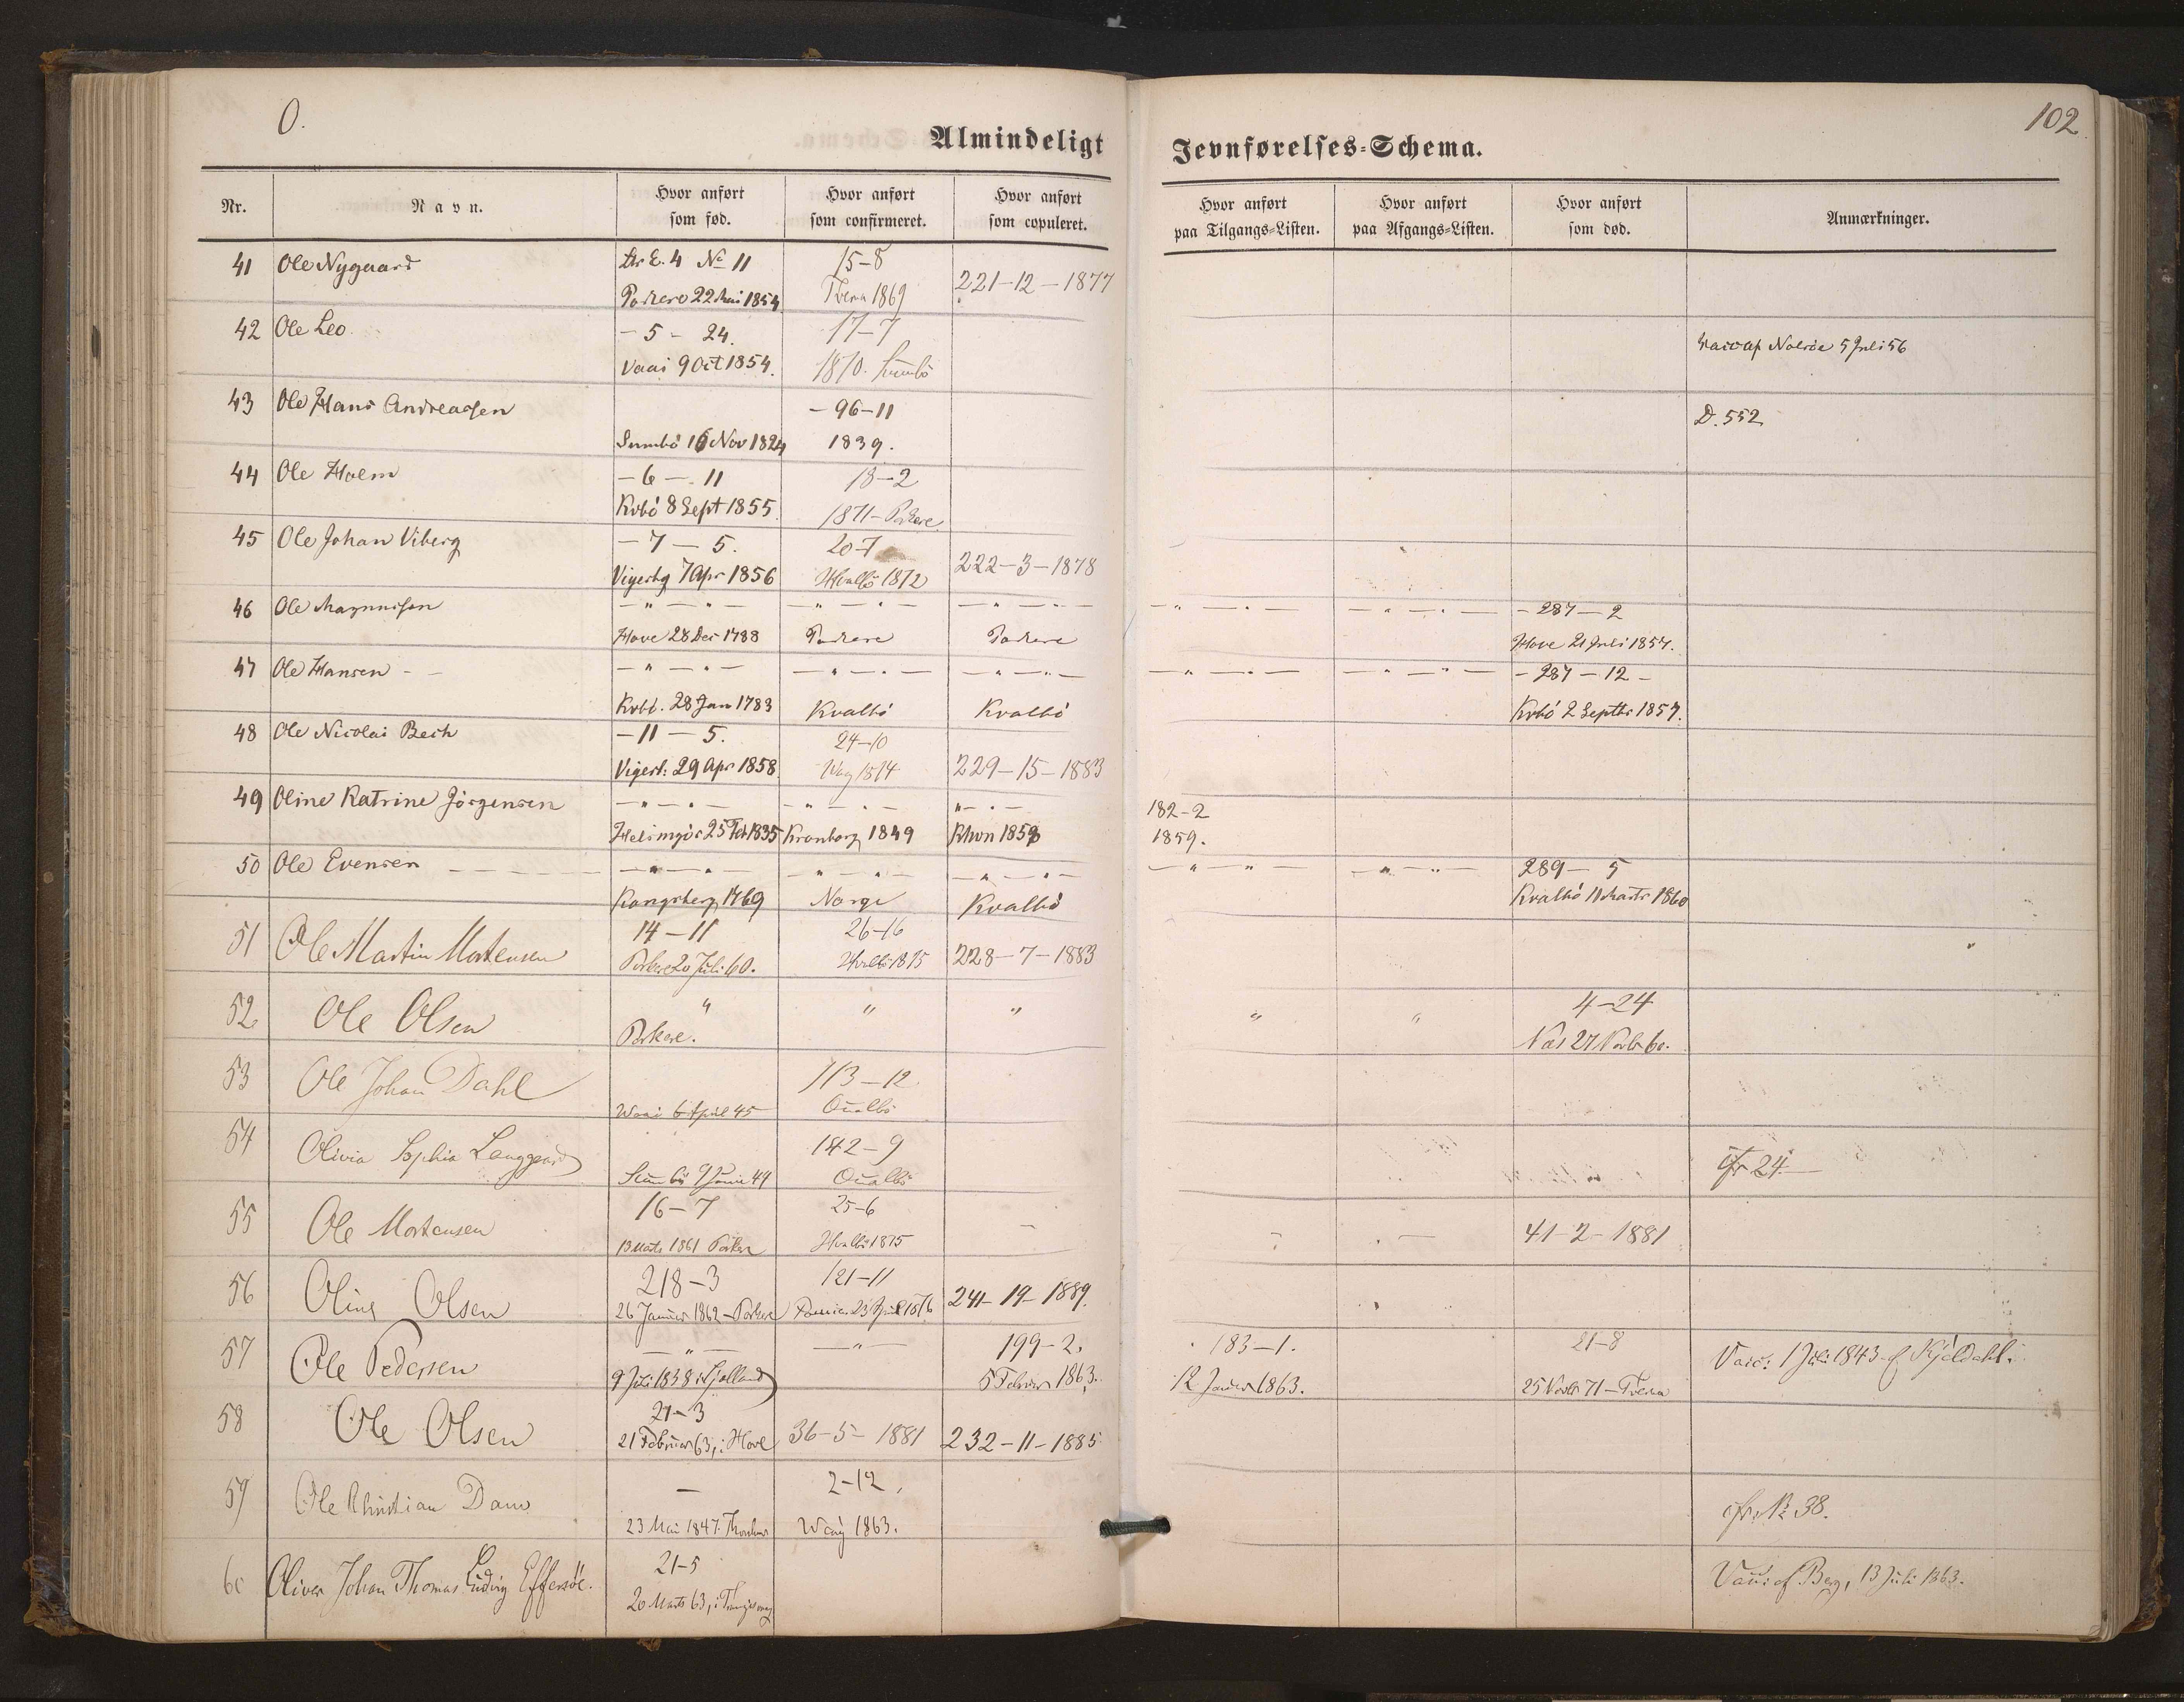 O.
Almindeligt
Jevnførelses-Schema.
102
Nr.
Navn.
Hvor anført som fød.
Hvor anført som confirmeret.
Hvor anført som copuleret.
Hvor anført paa Tilgangs-Listen.
Hvor anført paa Afgangs-Listen.
Hvor anført som død.
Anmærkninger.
41 Ole Nygaard 4 No 11 15-8 221-12-1877
22 Mai 1854 Tvera 1869
42 Ole Leo - 5 - 24. 17-7
Vaai 9 Oct 1854. 1870. Sumbö Nolsöe 5 Juli 56
43 Ole Hans Andreasen - 96-11 D. 552
Sumbö 16 Nov 1824 1839.
44 Ole Holm - 6 - 11 18-2
Kvbö 8 Sept 1855 1871 - Porkere
45 Ole Johan Viberg - 7 - 5. 20-7 222-3-1878
7 Apr 1856 Hvalbö 1872
46 Ole Magnussen - " - " - - " - " - - " - " - - " - " - - " - " - - 287 - 2
Hove 28 Dec 1788 Porkere Porkere Hove 21 Juli 1857.
47 Ole Hansen - " - " - - " - " - - " - " - - " - " - - " - " - - 287 - 12 -
Kvbö. 28 Jan 1783 Kvalbö Kvalbö Kvbö 2 Septbr 1857.
48 Ole Nicolai Bech - 11 - 5. 24-10 229-15-1883
Vigerb: 29 Apr 1858 Waag 1874
49 Oline Katrine Jörgensen - " - " - - " - " - " - " - 182-2
Helsingör 25 Feb 1835 Kronborg 1849 1858 1859.
50 Ole Evensen - " - " - - " - " - - " - " - - " - " - - " - " - 289 - 5
Kongsberg 1769 Norge Kvalbö Kvalbö 11 Marts 1860
51 Ole Martin Mortensen 14-11 26-16 228-7-1883
Porkere 20 Juli 60. Hvalbö 1875
52 Ole Olsen " " " " " 4-24
Porkere. Næs 27 Novbr 60.
53 Ole Johan Dahl 113-12
Waai 6 April 45 Qualbö
54 Olivia Sophia Langgaard 142-9 cfr 24.
Sumbö 9 Junie 44 Qualbö
55 Ole Mortensen 16-7 25-6 41-2-1881
13 Marts 1861 Porkere Hvalbö 1875
56 Oline Olsen 218-3 121-11 241-19-1889.
26 Januar 1862 - Porkere 23 April 1876
57 Ole Pedersen - " - - " - 199-2. 183-1. 21-8 Vacc: 1 Juli 1843 af Kjeldahl.
9 Juli 1838 i Sjælland 5 Februar 1863. 12 Januar 1863. 25 Novbr 71 - Tvera
58 Ole Olsen 21-3 36-5-1881 232-11-1885
21 Februar 63, i Hove
59 Ole Christian Dam - 2-12. cfr. No 38.
23 Mai 1847. Waag 1863.
60 Oliver Johan Thomas Ludvig Effersöe. 21-5 Vacc. af Berg, 13 Juli 1863.
20 Marts 63, i